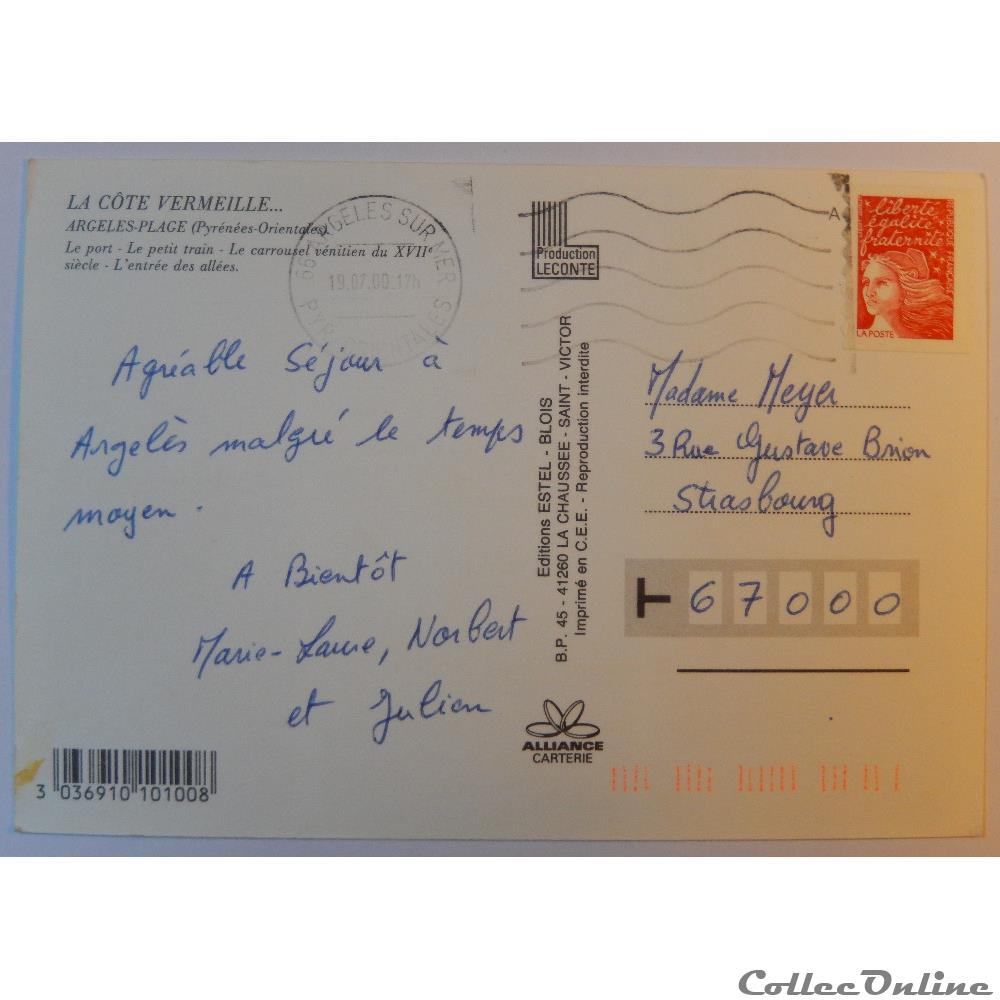 LA CÔTE VERMEILLE...
ARGELES-PLAGE (Pyrénées-Orientales)
Le port - Le petit train - Le carrousel vénitien du XVIIe
siècle - L'entrée des allées.
66 ARGELES SUR MER
19.07.00.17h
Agréable Séjour à
Argelès malgré le temps
moyen.
A Bientôt
Marie-Laure, Norbert
et Julien
3 036910 101008
Production
LECONTE
Editions ESTEL - BLOIS
B.P. 45 - 41260 LA CHAUSSEE - SAINT - VICTOR
Imprimé en C.E.E. - Reproduction interdite
ALLIANCE
CARTERIE
A
liberté
égalité
fraternité
REPUBLIQUE FRANÇAISE
LA POSTE
Madame Meyer
3 Rue Gustave Brion
Strasbourg
67000
CollecOnline